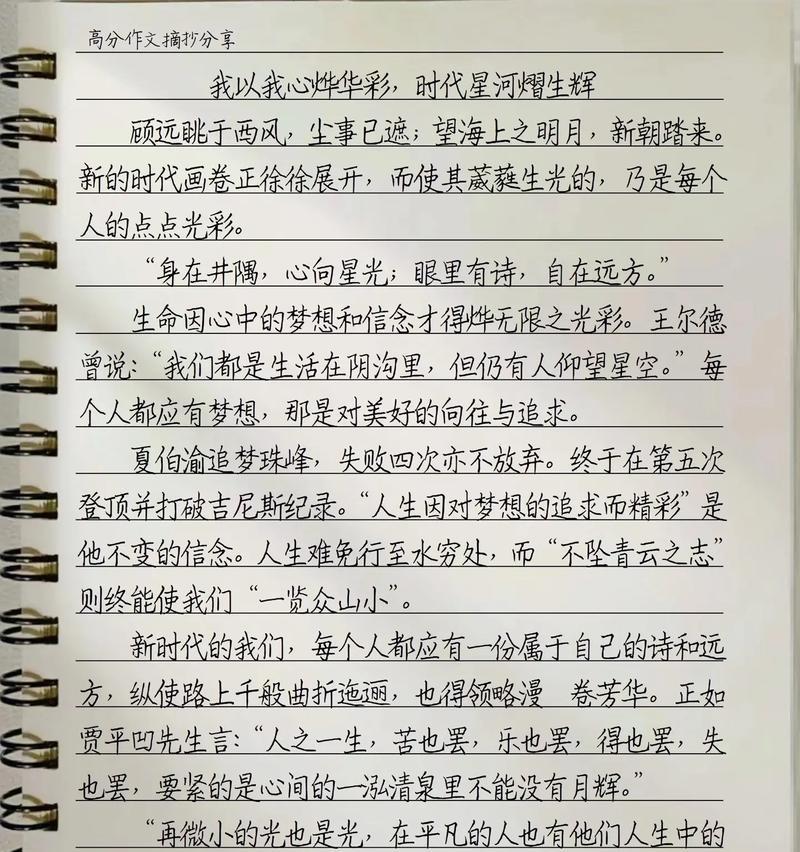 高分作文摘抄分享
我以我心烨华彩，时代星河熠生辉
顾远眺于西风，尘事已遮；望海上之明月，新朝踏来。
新的时代画卷正徐徐展开，而使其葳蕤生光的，乃是每个
人的点点光彩。
“身在井隅，心向星光；眼里有诗，自在远方。”
生命因心中的梦想和信念才得烨无限之光彩。王尔德
曾说：“我们都是生活在阴沟里，但仍有人仰望星空。”每
个人都应有梦想，那是对美好的向往与追求。
夏伯渝追梦珠峰，失败四次亦不放弃。终于在第五次
登顶并打破吉尼斯纪录。“人生因对梦想的追求而精彩”是
他不变的信念。人生难免行至水穷处，而“不坠青云之志”
则终能使我们“一览众山小”。
新时代的我们，每个人都应有一份属于自己的诗和远
方，纵使路上千般曲折迤逦，也得领略漫　卷芳华。正如
贾平凹先生言：“人之一生，苦也罢，乐也罢，得也罢，失
也罢，要紧的是心间的一泓清泉里不能没有月辉。”
“再微小的光也是光，在平凡的人也有他们人生中的